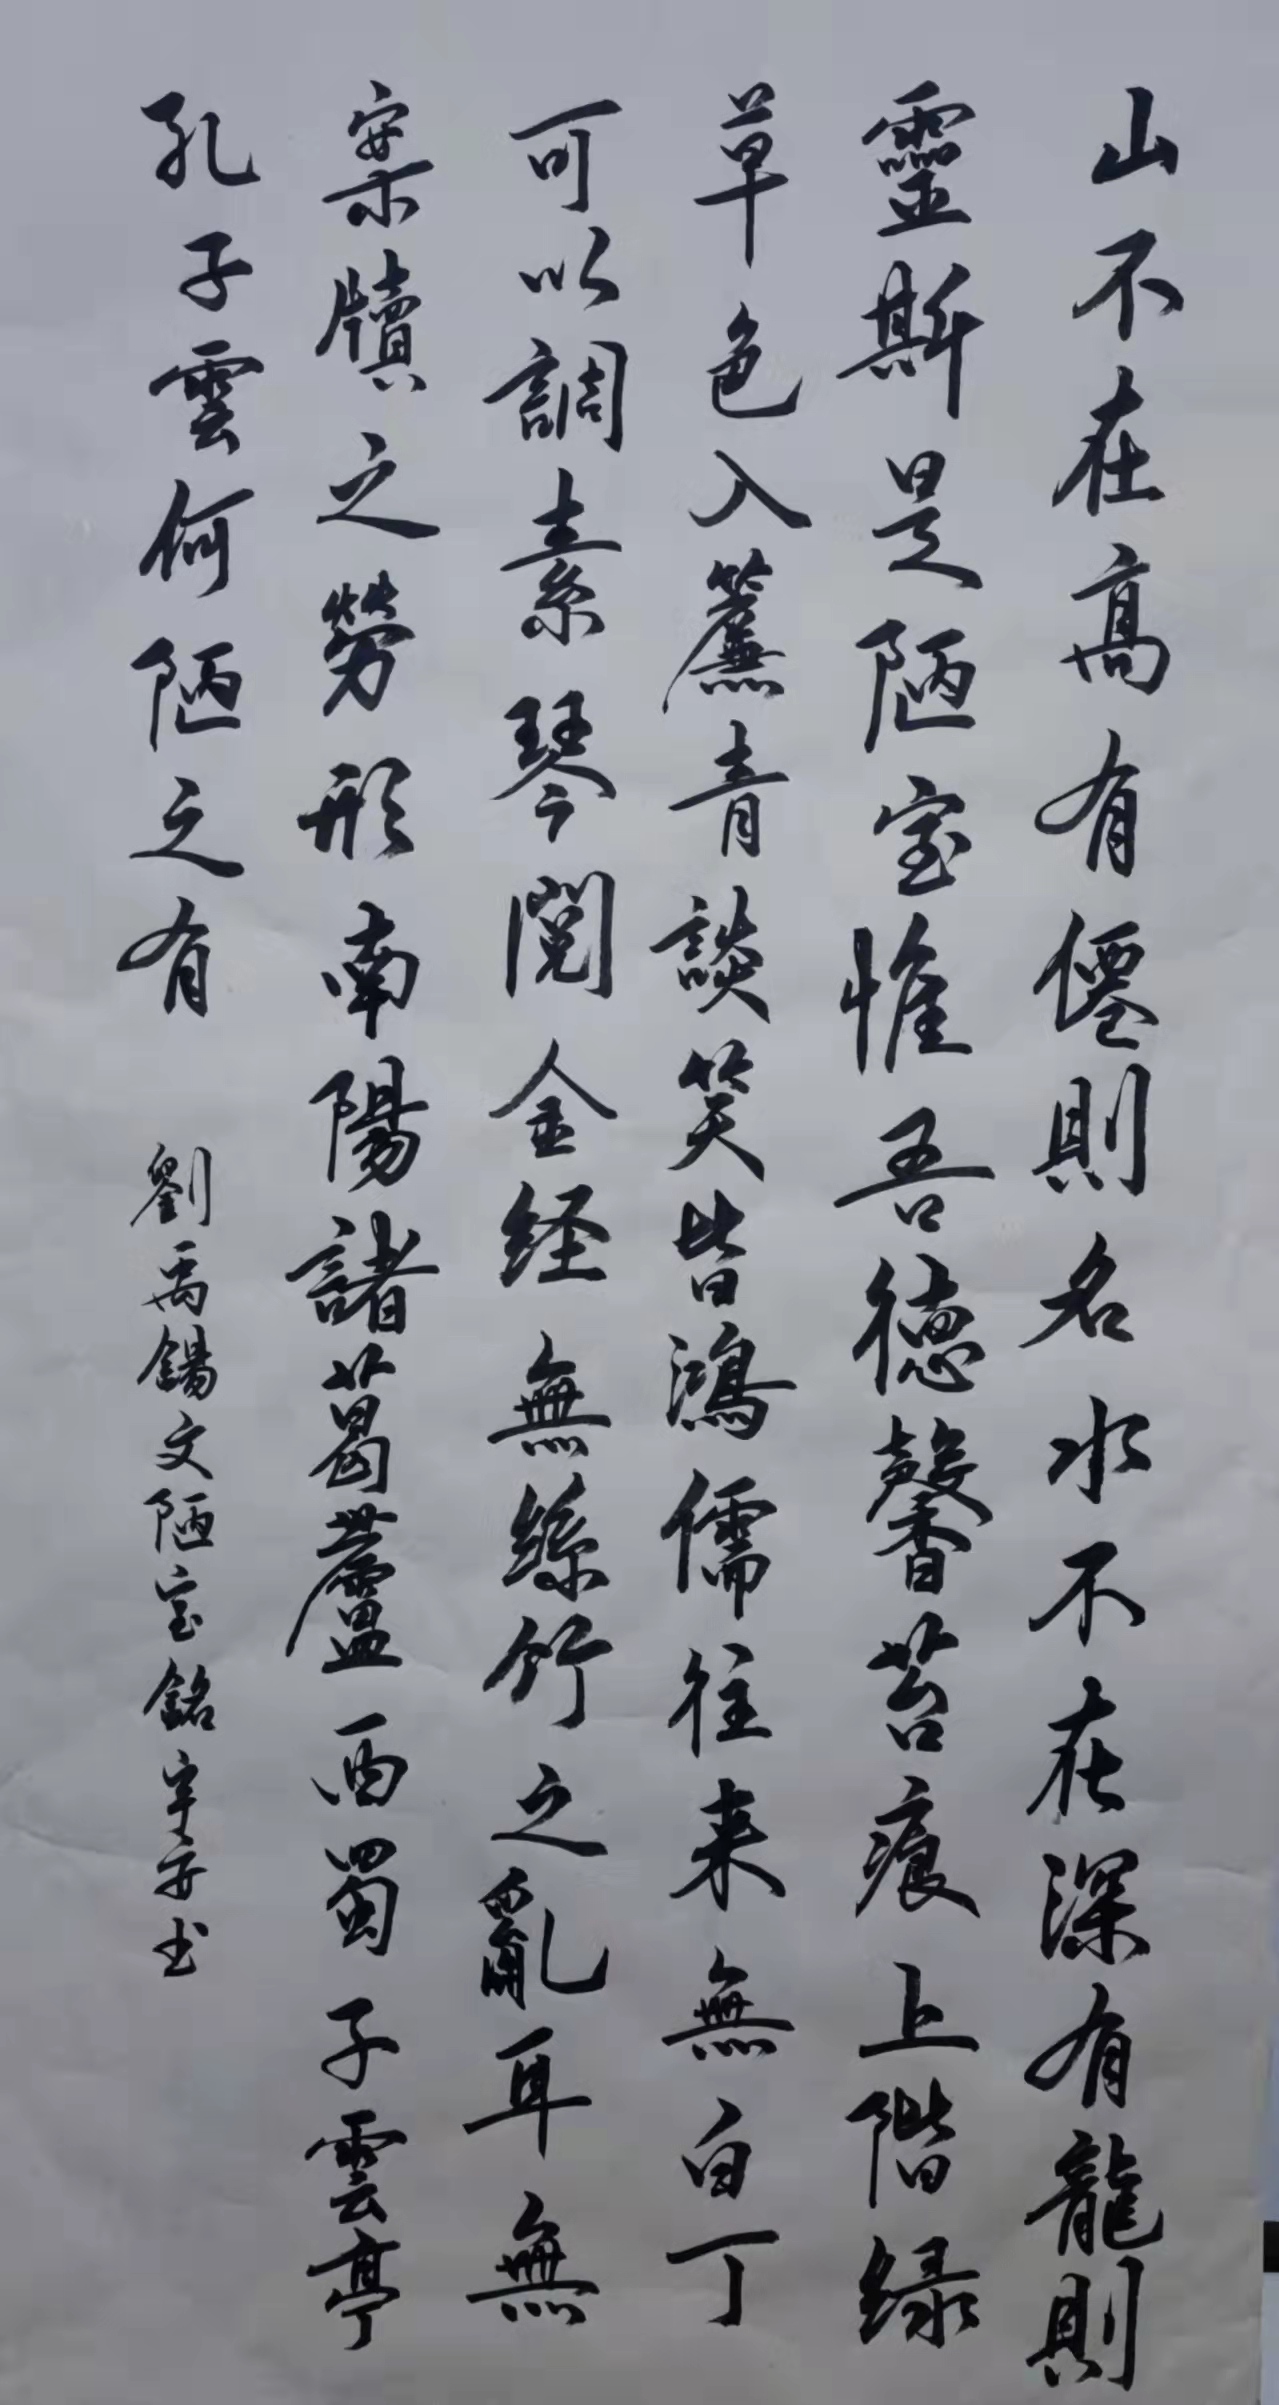 山不在高有僊則名水不在深有龍則
靈斯是陋室惟吾德馨苔痕上階緑
草色入簾青談笑皆鴻儒往来無白丁
可以調素琴閲金経無絲竹之亂耳無
案牘之勞形南陽諸葛蘆西蜀子雲亭
孔子雲何陋之有
劉禹錫文陋室銘 书